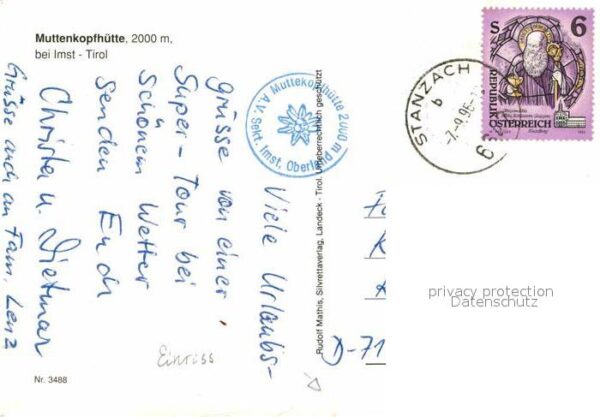 Muttenkopfhütte, 2000 m,
bei Imst - Tirol
Viele Urlaubs-
grüsse von einer
Super-Tour bei
Schönem Wetter
senden Euch
Christen u. Dietmar
Grüsse auch an Fam. Lenz
Muttekopfhütte 2000 m
A.V. Sekt. Imst. Oberland
Rudolf Mathis, Silvrettaverlag, Landeck - Tirol. Urheberrechtlich geschützt
STANZACH
b
-7.-9.96-
S 6
REPUBLIK
ÖSTERREICH
D-71
privacy protection
Datenschutz
Einriss
Nr. 3488